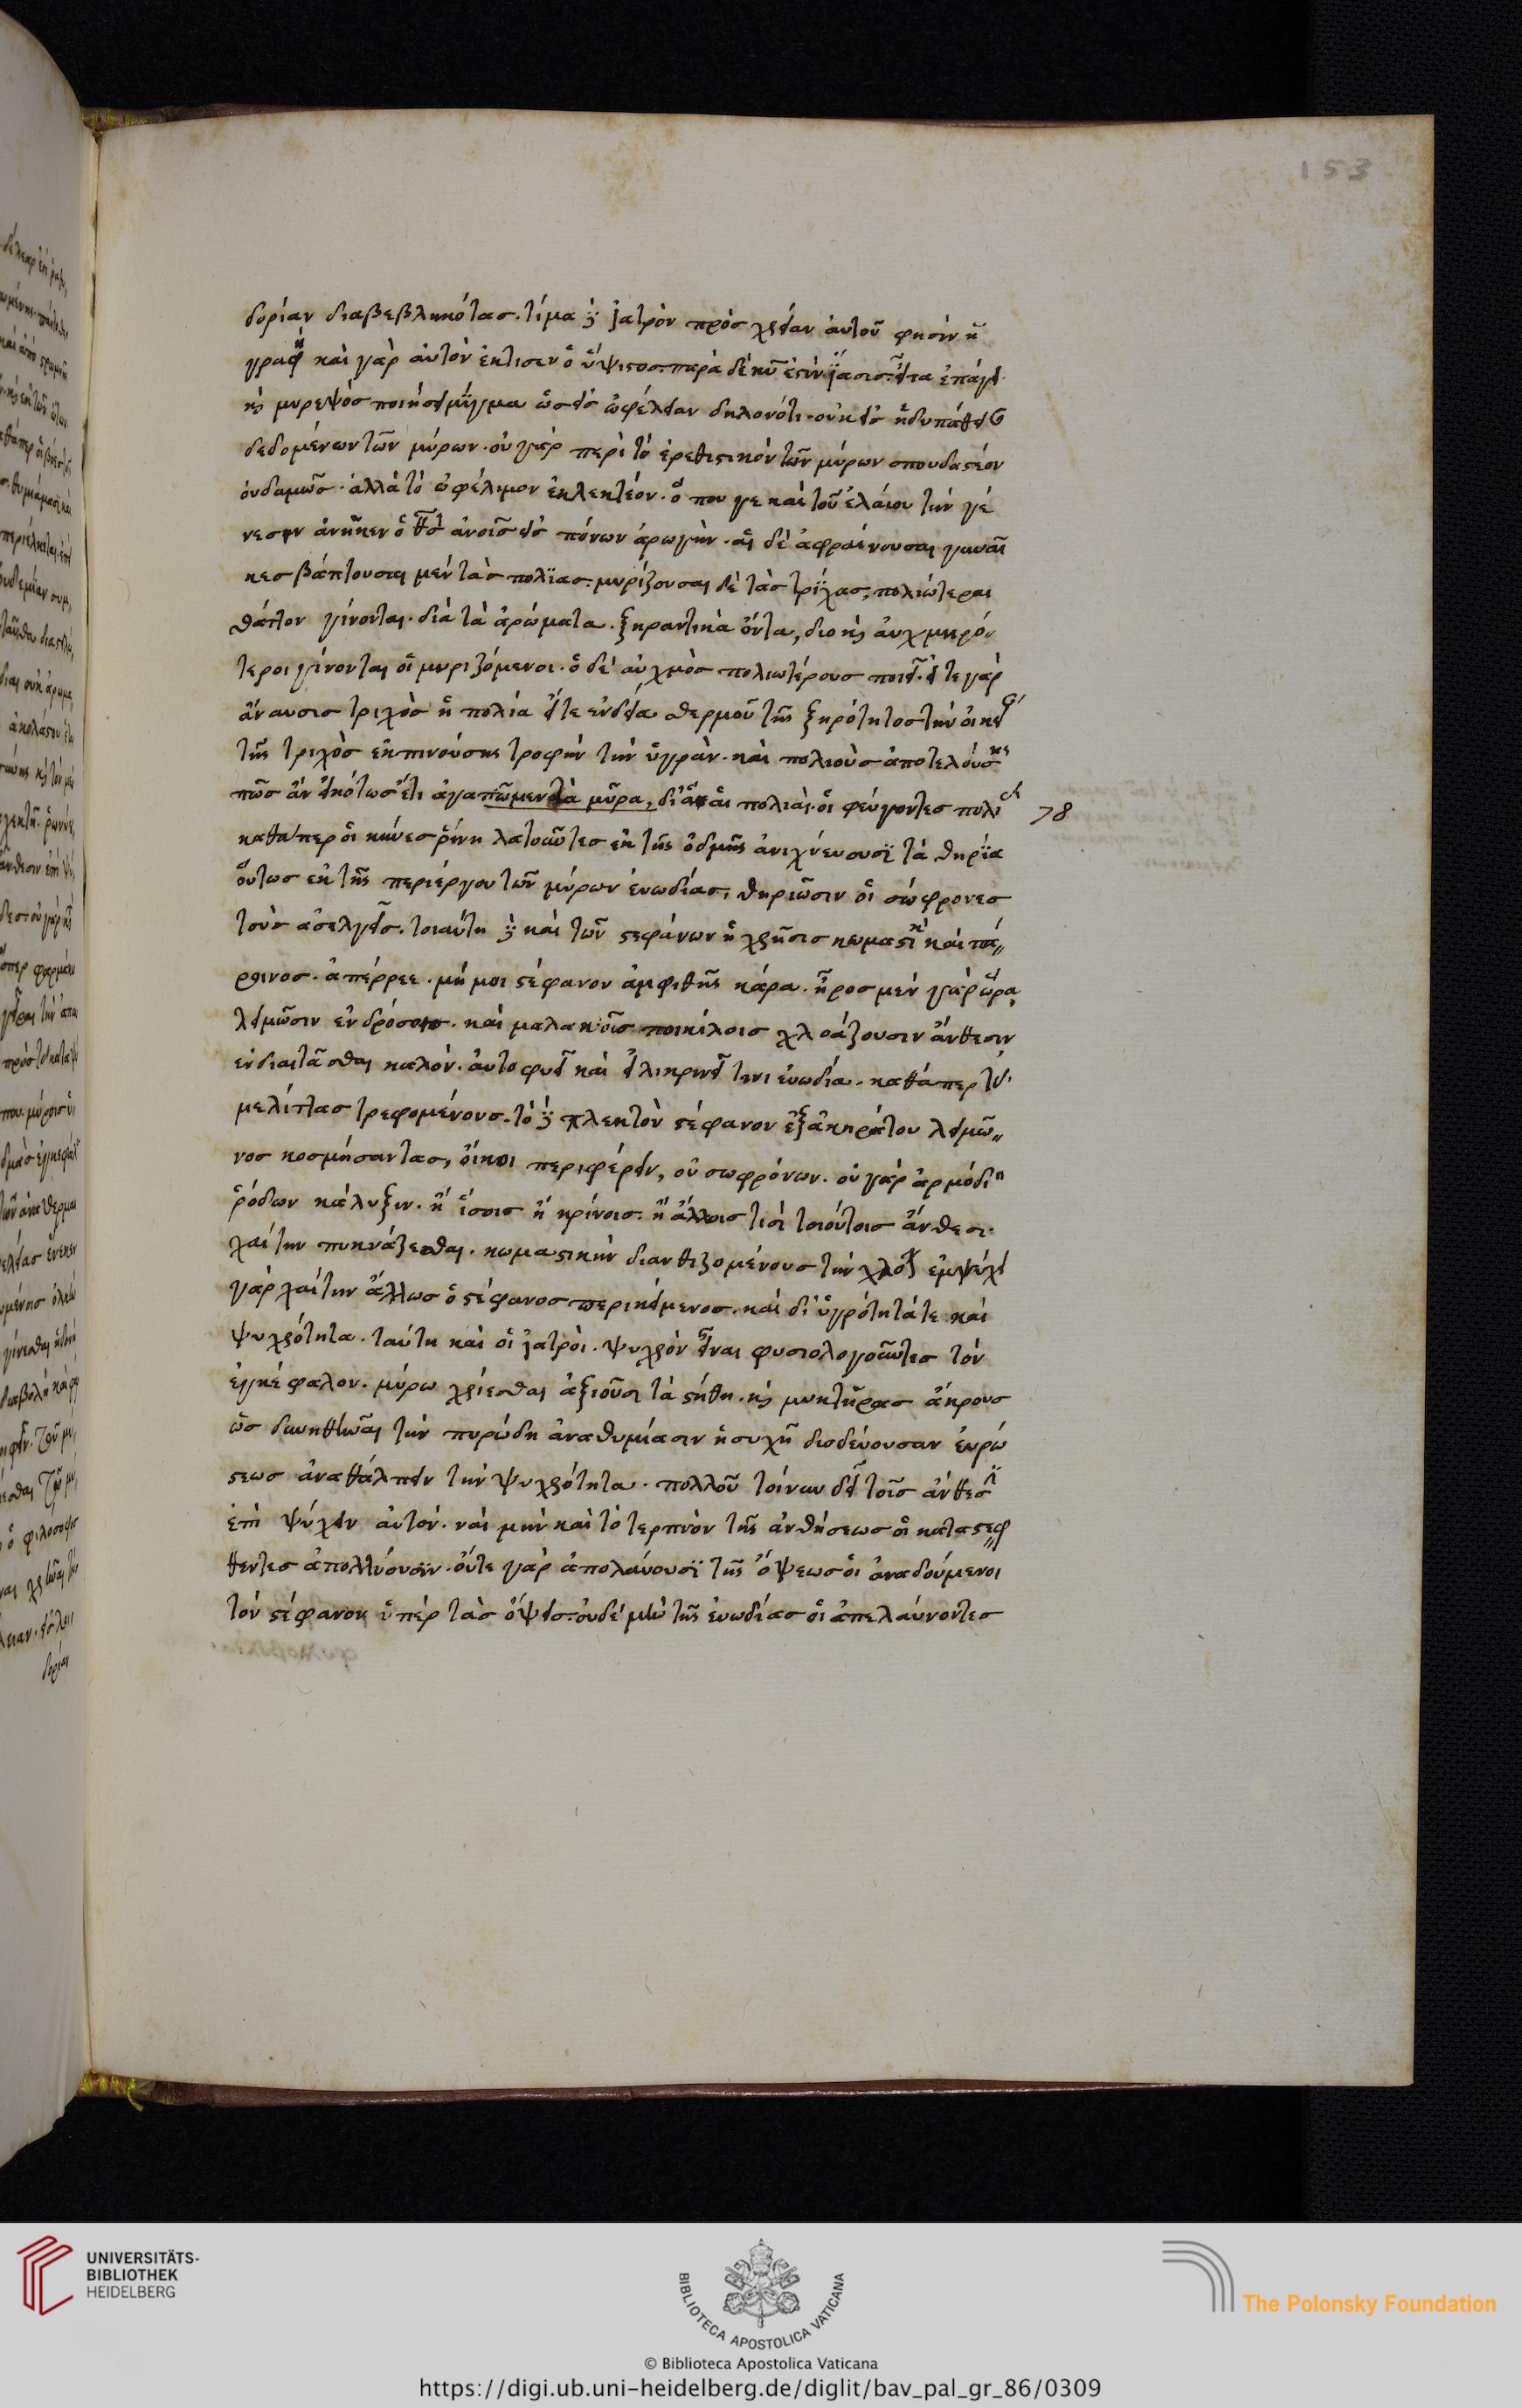 153
δορίαν διαβεβληκότας. τίμα δὲ ἰατρὸν πρὸς χρείαν αὐτοῦ φησὶν ἡ
γραφὴ καὶ γὰρ αὐτὸν ἔκτισεν ὁ ὕψιστος. παρὰ δὲ κυ̅ ἐστὶν ἴασις. εἶτα ἐπάγει.
κὶ μυρεψὸς ποιήσει μίγμα ὡς εἰς ὠφέλειαν δηλονότι. οὐκ εἰς ἡδυπάθειαν
δεδομένων τῶν μύρων. οὐ γὰρ περὶ τὸ ἐρεθιστικὸν τῶν μύρων σπουδαστέον
οὐδαμῶς. ἀλλὰ τὸ ὠφέλιμον ἐκλεκτέον. ὅ που γε καὶ τοῦ ἐλαίου τὴν γέ
νεσιν ἀνῆκεν ὁ θσ̅ ἀνοισ̅ εἰς πόνων ἀρωγήν. αἱ δὲ ἀφραίνουσαι γυναῖ
κες βάπτουσαι μὲν τὰς πολϊας. μυρίζουσαι δὲ τὰς τρίχας, πολιώτεραι
θάττον γίνονται. διὰ τὰ ἀρώματα. ξηραντικὰ ὄντα, διο κὶ αὐχμηρό
τεροι γίνονται οἱ μυριζόμενοι. ὁ δὲ αὐχμὸς πολιωτέρους ποιεῖ. εἴτε γὰρ
ἄναυσις τριχὸς ἡ πολία εἴτε ἔνδεια θερμοῦ τῆς ξηρότητος τὴν οἰκείαν
τῆς τριχὸς ἐκπινούσης τροφὴν τὴν ὑγρὰν. καὶ πολιοὺς ἀποτελούσης
πῶς ἂν εἰκότως ἔτι ἀγαπῶμεν τὰ μῦρα, δι ἃ αἱ πολιαὶ. οἱ φεύγοντες πολι
78
καθάπερ οἱ κύνες ῥίνη λατοῦντες ἐκ τῆς ὀδμῆς ἀνιχνεύουσϊ τὰ θηρία
οὕτως ἐκ τῆς περιέργου τῶν μύρων ἐυωδίας, θηριῶσιν οἱ σώφρονες
τοὺς ἀσελγεῖς. τοιαύτη δὲ καὶ τῶν στεφάνων ἡ χρῆσις κωμαστικὴ καὶ πά
ροινος. ἀπέρρεε. μή μοι στέφανον ἀμφιθῆς κάρα. ἦρος μὲν γὰρ ὥρα,
λειμῶσιν ἐνδρόσοις. καὶ μαλακοῖς ποικίλοις χλοάζουσιν ἄνθεσιν
ἐνδιαιτᾶσθαι καλόν. αὐτοφυεῖ καὶ εἰλικρινεῖ τινι ἐυωδία. καθάπερ τὰς
μελίττας τρεφομένους. τὸ δὲ πλεκτὸν στέφανον ἐξ ἀκηράτου λειμῶ
νος κοσμήσαντας, οἴκοι περιφέρειν, οὐ σωφρόνων. οὐ γὰρ ἁρμόδιον
ῥόδων κάλυξιν. ἢ ἴσοις ἢ κρίνοις. ἢ ἄλλοις τισὶ τοιούτοις ἄνθεσι.
χαίτην πυκνάζεσθαι. κωμαστικὴν διανθιζομένους τὴν ἐμψύχει
γὰρ χαίτην ἄλλως ὁ στέφανος περικείμενος. καὶ δι ὑγρότητά τε καὶ
ψυχρότητα. ταύτη καὶ οἱ ἰατρὸι. ψυχρὸν εἶναι φυσιολογοῦντες τὸν
ἐγκέφαλον. μύρω χρίεσθαι ἀξιοῦσι τὰ στήθη. κὶ μυκτῆρας ἄκρους
ὡς δυνηθῆναι τὴν πυρώδη ἀναθυμίασιν ἡσυχῆ διοδεύουσαν ἐυρώ
στως ἀναθάλπειν τὴν ψυχρότητα. πολλοῦ τοίνυν δεῖ τοῖς ἄνθεσι
ἐπι ψύχειν αὐτόν. ναὶ μὴν καὶ τὸ τερπνὸν τῆς ἀνθήσεως οἱ καταστεφ
θεντες ἀπολλύουσϊν. οὔτε γὰρ ἀπολαύουσϊ τῆς ὄψεως οἱ ἀναδούμενοι
τὸν στέφανον ὑπὲρ τὰς ὄψεις. οὐδὲ μὴν τῆς ἐυωδίας οἱ ἀπελαύνοντες
UNIVERSITÄTS-
BIBLIOTHEK
HEIDELBERG
BIBLIOTECA APOSTOLICA VATICANA
© Biblioteca Apostolica Vaticana
The Polonsky Foundation
https://digi.ub.uni-heidelberg.de/diglit/bav_pal_gr_86/0309